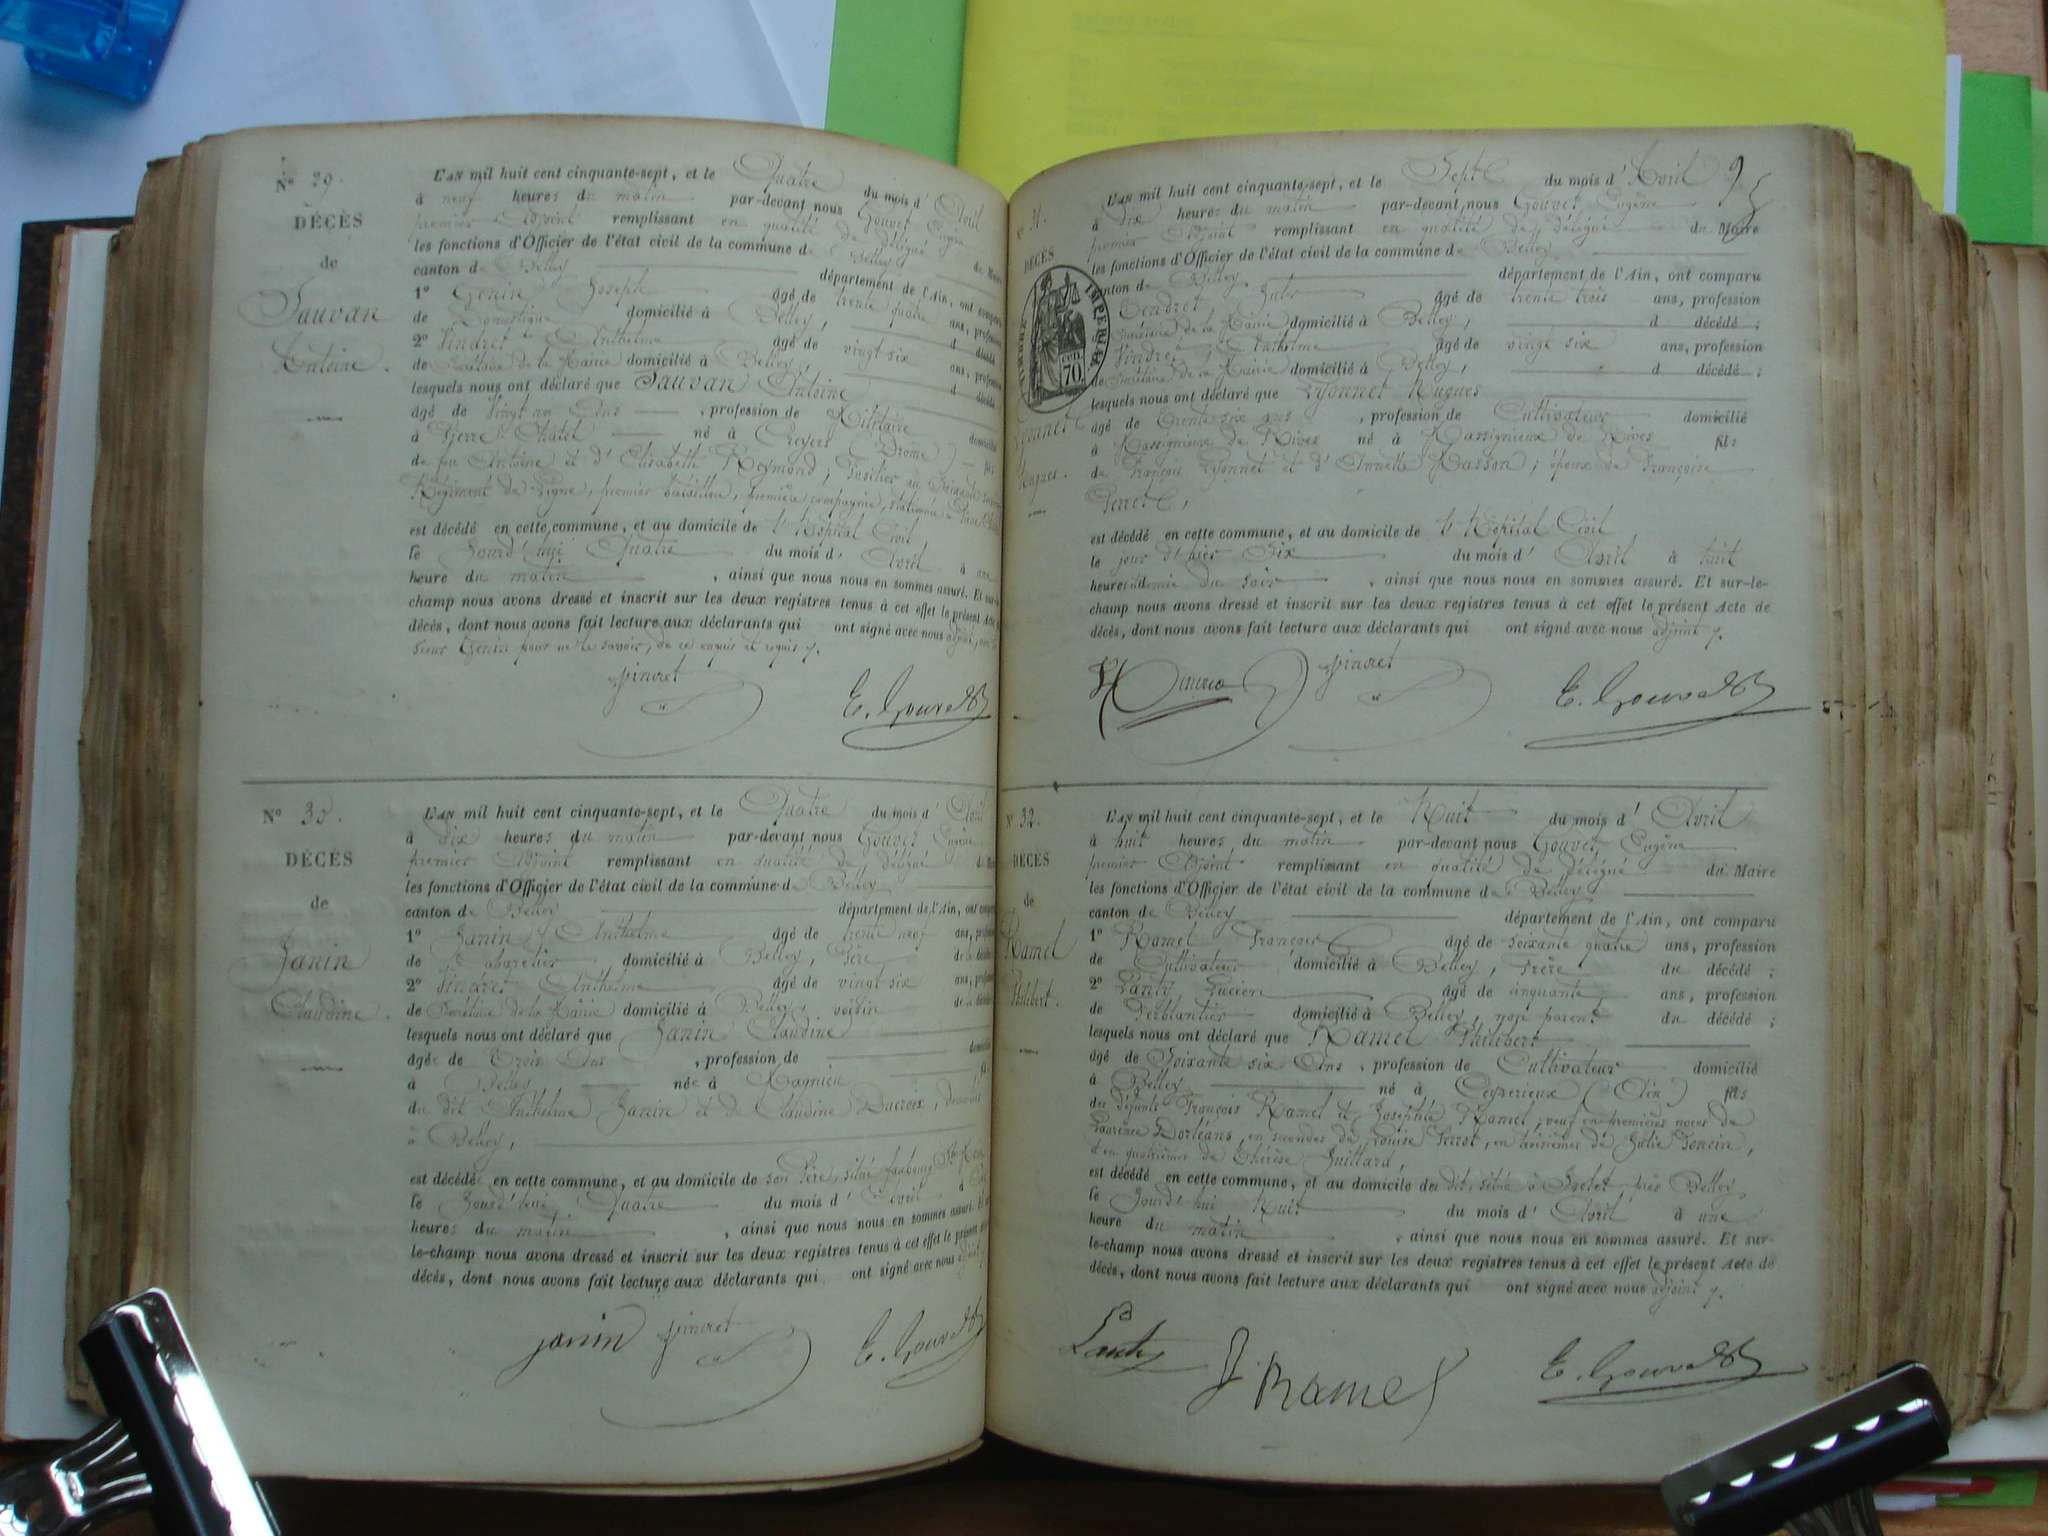 N° 29.
DÉCÈS
de
Sauvan
Antoine.
L'AN mil huit cent cinquante-sept, et le Quatre du mois d'Avril
à neuf heures du matin par-devant nous Gouvet Eugène
premier Adjoint remplissant en qualité de délégué du Maire
les fonctions d'Officier de l'état civil de la commune de Belley
canton de Belley département de l'Ain, ont comparu
1° Genin Joseph âgé de trente quatre ans, profession
de Domestique domicilié à Belley, d décédé
2° Vindret Anthelme âgé de vingt six ans, profession
de Secrétaire de la Mairie domicilié à Belley, d décédé
lesquels nous ont déclaré que Sauvan Antoine
âgé de Vingt un Ans, profession de Militaire domicilié
à Pierre Châtel né à Creyers (Drôme) fils
de feu Antoine et d'Elisabeth Reymond, Fusilier au Soixante
Régiment de Ligne, premier bataillon, première compagnie, stationnée à Pierre Châtel
est décédé en cette commune, et au domicile de l'Hôpital Civil,
le Jourd'hui Quatre du mois d'Avril à une
heure du matin, ainsi que nous nous en sommes assuré. Et sur-le-
champ nous avons dressé et inscrit sur les deux registres tenus à cet effet le présent Acte de
décès, dont nous avons fait lecture aux déclarants qui ont signé avec nous adjoint,
sieur Genin pour ne le savoir, de ce enquis et requis
Vindret
E. Gouvet
N° 30.
DÉCÈS
de
Janin
Claudine.
L'AN mil huit cent cinquante-sept, et le Quatre du mois d'Avril
à dix heures du matin par-devant nous Gouvet Eugène
premier Adjoint remplissant en qualité de délégué du Maire
les fonctions d'Officier de l'état civil de la commune de Belley
canton de Belley département de l'Ain, ont comparu
1° Janin Anthelme âgé de trente neuf ans, profession
de Cabaretier domicilié à Belley, Père de la décédée
2° Vindret Anthelme âgé de vingt six ans, profession
de Secrétaire de la Mairie domicilié à Belley, voisin de la décédée
lesquels nous ont déclaré que Janin Claudine
âgée de Trois Ans, profession de domiciliée
à Belley née à Magnieu, fille
du dit Anthelme Janin et de Claudine Ducroix, demeurant
à Belley,
est décédée en cette commune, et au domicile de son Père, situé faubourg St
le Jourd'hui Quatre du mois d'Avril à
heures du matin, ainsi que nous nous en sommes assuré. Et sur-
le-champ nous avons dressé et inscrit sur les deux registres tenus à cet effet le présent Acte de
décès, dont nous avons fait lecture aux déclarants qui ont signé avec nous adjoint
janin Vindret
E. Gouvet
95
N° 31.
DÉCÈS
TIMBRE IMPÉRIAL
70 cen
Lyonnet
Hugues.
L'AN mil huit cent cinquante-sept, et le Sept du mois d'Avril
à dix heures du matin par-devant nous Gouvet Eugène
premier Adjoint remplissant en qualité de délégué du Maire
les fonctions d'Officier de l'état civil de la commune de Belley
canton de Belley département de l'Ain, ont comparu
Tendret Jules âgé de trente trois ans, profession
Secrétaire de la Mairie domicilié à Belley, d décédé;
Vindret Anthelme âgé de vingt six ans, profession
de Secrétaire de la Mairie domicilié à Belley, d décédé;
lesquels nous ont déclaré que Lyonnet Hugues
âgé de trente six ans, profession de Cultivateur domicilié
à Massignieu de Rives né à Massignieux de Rives fils
de François Lyonnet et d'Annette Masson; époux de Françoise
Perret,
est décédé en cette commune, et au domicile de l'Hôpital Civil
le jour d'hier Six du mois d'Avril à huit
heures et demie du soir, ainsi que nous nous en sommes assuré. Et sur-le-
champ nous avons dressé et inscrit sur les deux registres tenus à cet effet le présent Acte de
décès, dont nous avons fait lecture aux déclarants qui ont signé avec nous adjoint
Vindret
E. Gouvet
N° 32.
DÉCÈS
de
Ramel
Philibert.
L'AN mil huit cent cinquante-sept, et le Huit du mois d'Avril
à huit heures du matin par-devant nous Gouvet Eugène
premier Adjoint remplissant en qualité de délégué du Maire
les fonctions d'Officier de l'état civil de la commune de Belley
canton de Belley département de l'Ain, ont comparu
1° Ramel François âgé de soixante quatre ans, profession
de Cultivateur domicilié à Belley, frère du décédé;
2° Lanty Lucien âgé de cinquante ans, profession
de Ferblantier domicilié à Belley, non parent du décédé;
lesquels nous ont déclaré que Ramel Philibert
âgé de Soixante six Ans, profession de Cultivateur domicilié
à Belley né à Ceyzerieux (Ain) fils
des défunts François Ramel et Josephte Ramel, veuf en premières noces de
Laurence Dorléans, en secondes de Louise Perrot, en troisièmes de Julie Poncin,
et en quatrièmes de Thérèse Juillard,
est décédé en cette commune, et au domicile du dit, situé à près Belley
le Jourd'hui Huit du mois d'Avril à une
heure du matin, ainsi que nous nous en sommes assuré. Et sur-
le-champ nous avons dressé et inscrit sur les deux registres tenus à cet effet le présent Acte de
décès, dont nous avons fait lecture aux déclarants qui ont signé avec nous adjoint
Lanty
f Ramel
E. Gouvet